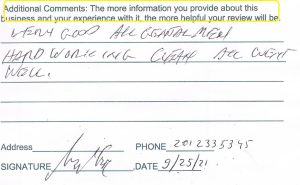 Additional Comments: The more information you provide about this
business and your experience with it, the more helpful your review will be.
VERY GOOD ALL GENTALMEN
HARD WORKING CLEAN ALL WENT
WELL.
Address PHONE 2012335345
SIGNATURE DATE 9/25/21